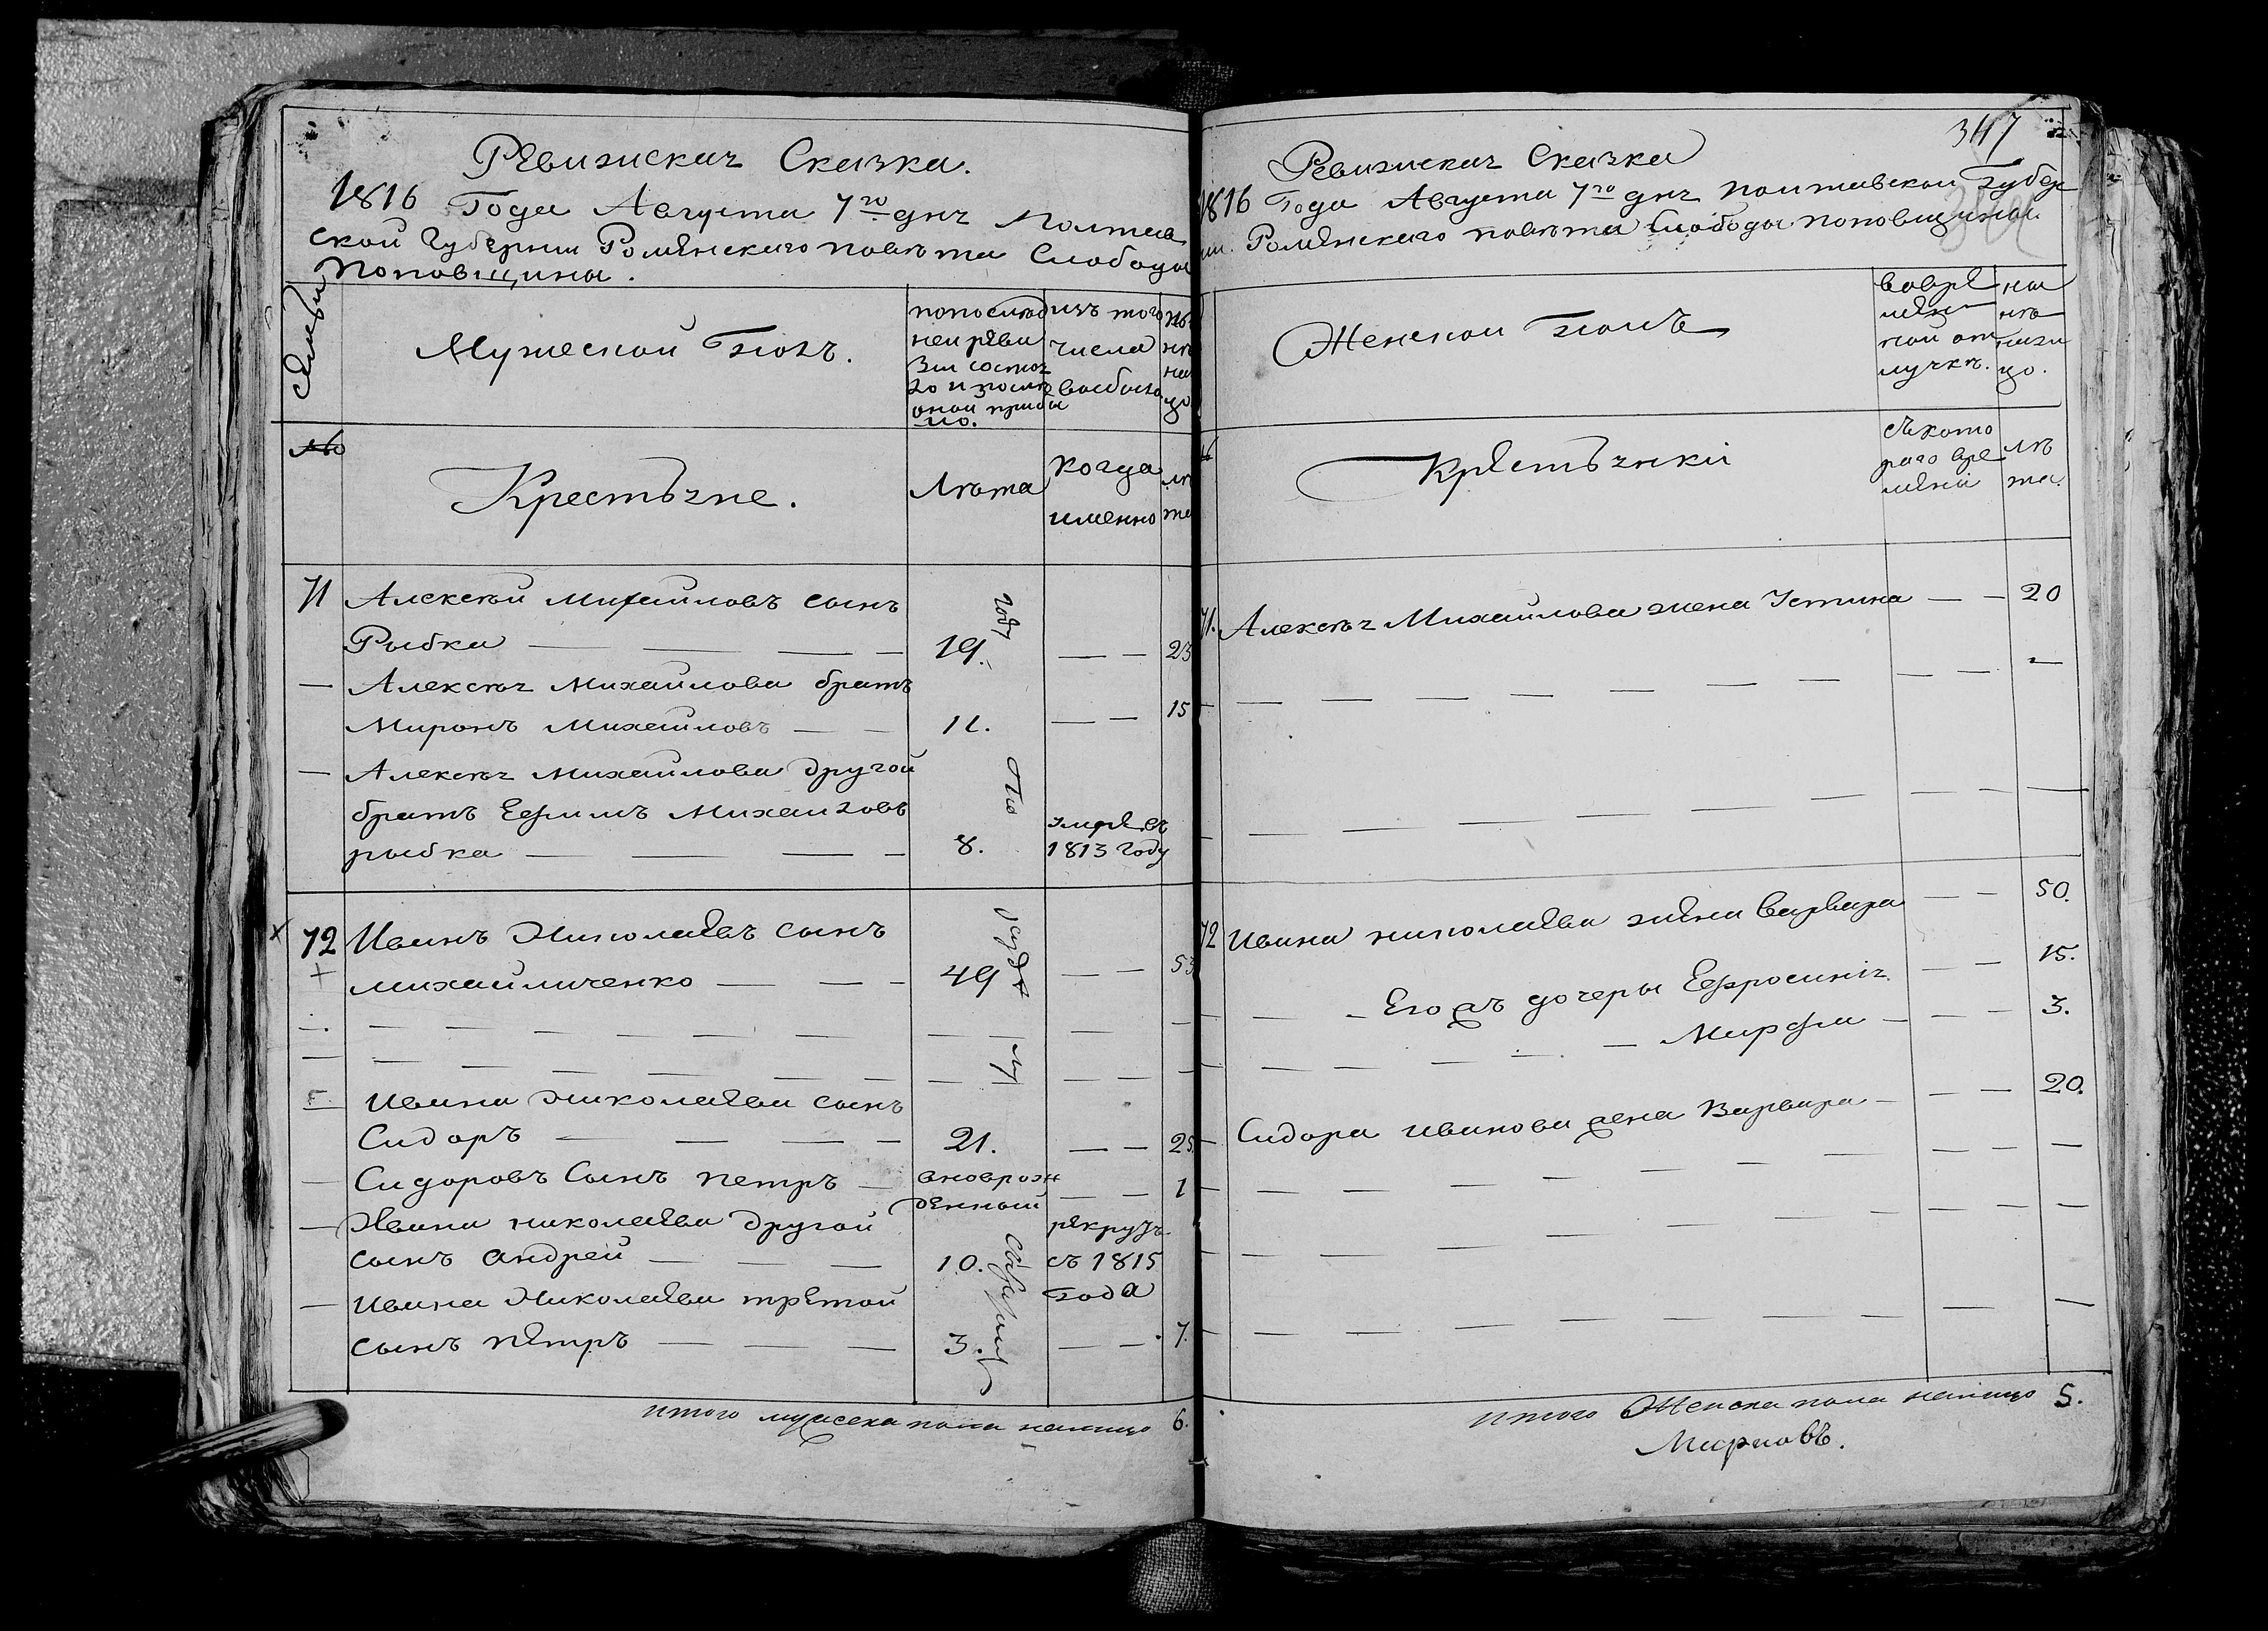 Ревизская Сказка.
1816 Года Августа 7го дня Полтав
ской Губернии Роменскаго повѣта Слободы
Поповщины.
Мужеской Полъ.
попослѣд
ней реви
зіи состоя
ло и послѣ
оной прибы
ло.
изъ того
числа
выбыло
Крестьяне.
Лѣта
когда
именно
лѣ
та
71 Алексѣй Михайловъ сынъ
Рыбка 19. 23
Алексѣя Михайлова братъ
Миронъ Михайловъ 11. 15
Алексѣя Михайлова другой
братъ Ефимъ Михайловъ
рыбка 8. умре въ
1813 году
72 Иванъ Николаевъ сынъ
михайличенко 49 53
Ивана Николаева сынъ
Сидоръ 21. 25.
Сидоровъ Сынъ петръ вноврож
денный 1
Ивана николаева другой
сынъ андрей 10. рекрутъ
съ 1815
года
Ивана Николаева третой
сынъ петръ 3. 7.
итого мужеска пола налицо 6.
347
Ревизская Сказка
1816 Года Августа 7го дня полтавской Губер
ніи. Роменскаго повѣта Слободы поповщины
Женской полъ
вовре
мен
ной от
лучкѣ.
на
ли
цо.
Крестьянки
съкото
раго вре
мени
лѣ
та.
71. Алексѣя Михайлова жена Устина 20
72 Ивана николаева жена Варвара 50.
Егожъ дочеры Ефросинія 15.
Марфа 3.
Сидора иванова жена Варвара 20.
итого Женска пола налицо 5.